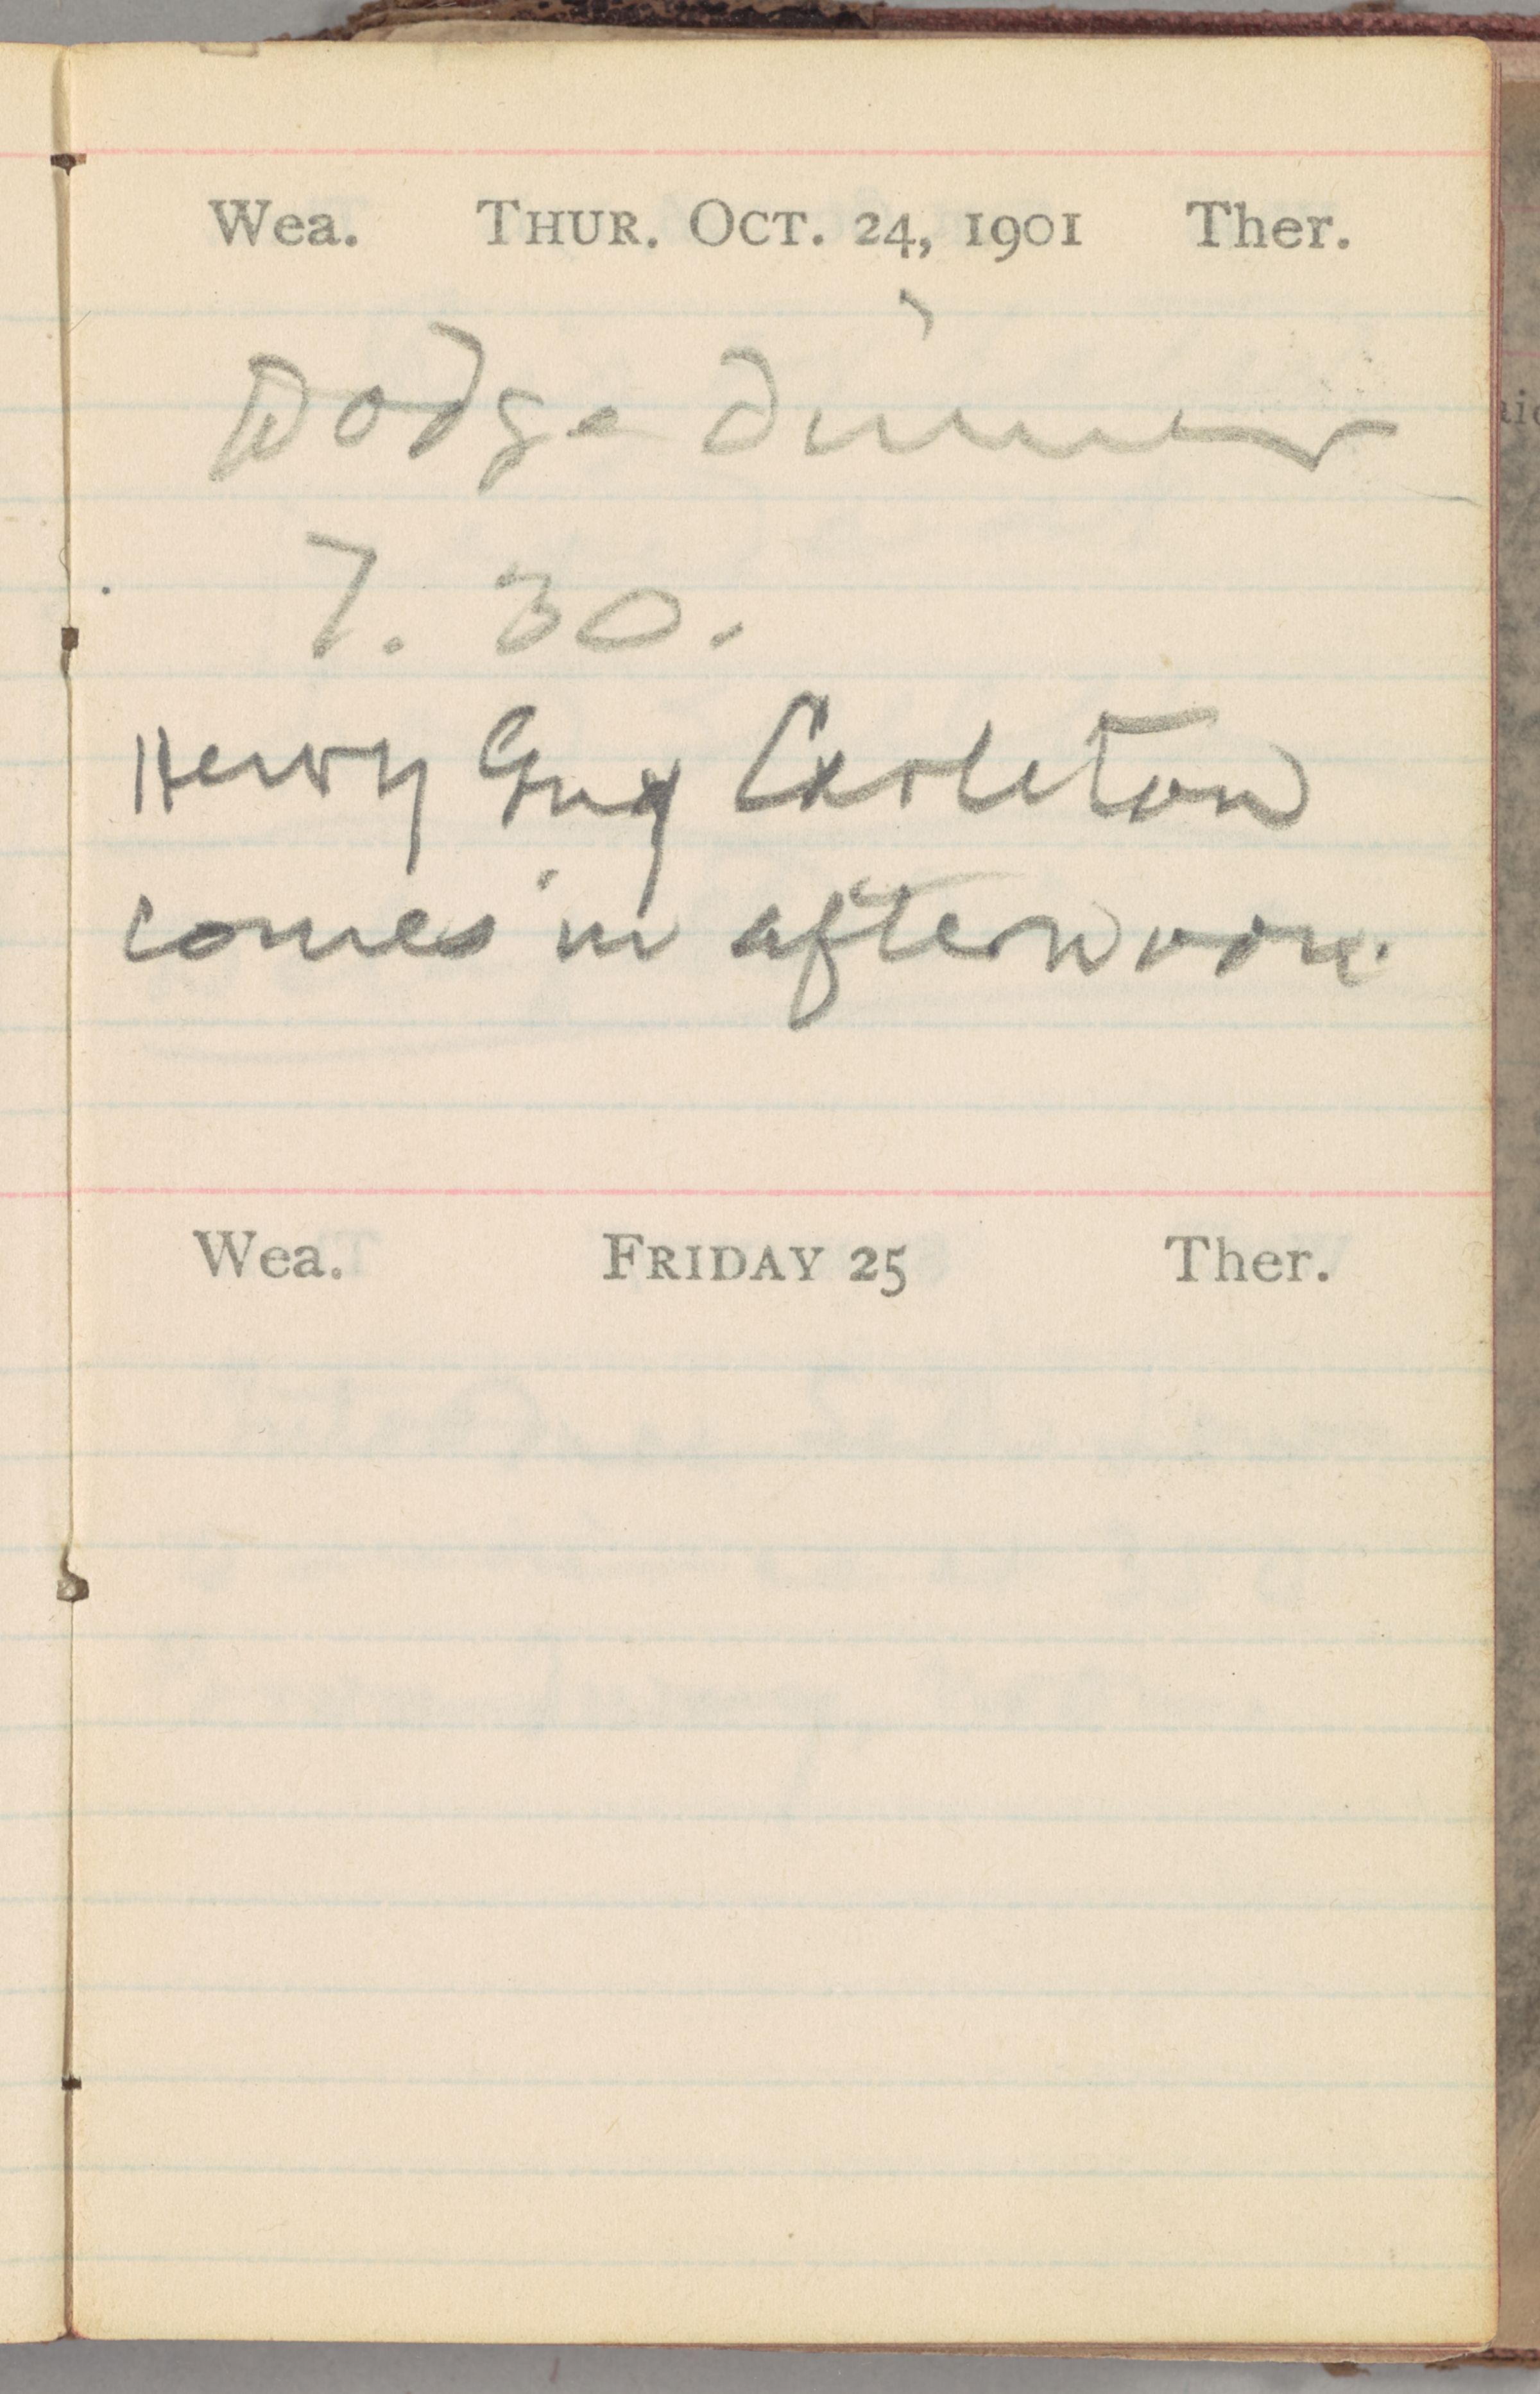 Wea. THUR. OCT. 24, 1901 Ther.
Dodge dinner
7. 30.
Henry Guy Carleton
comes in afternoon.
Wea. FRIDAY 25 Ther.